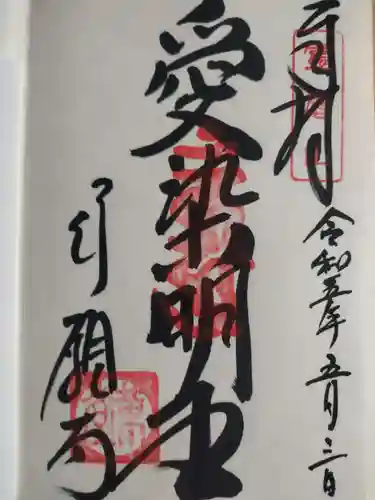 奉拝
令和五年五月三日
愛染明王
行願寺